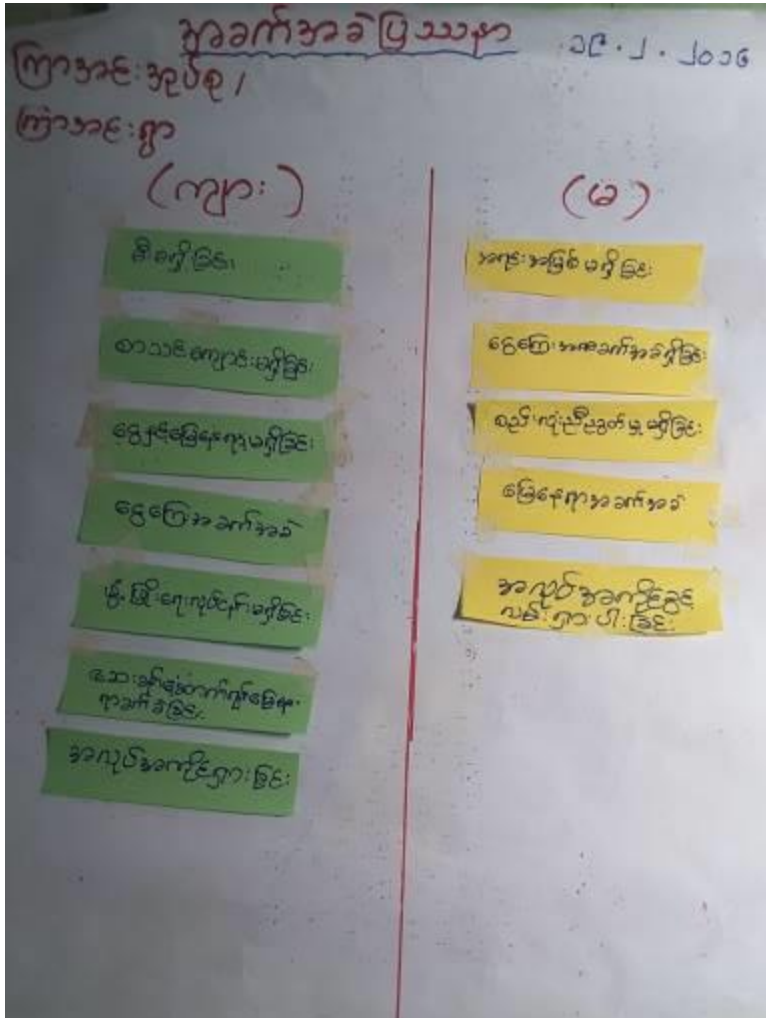 အခက်အခဲပြဿနာ ၁၉.၂.၂၀၁၆
ကြာအင်းအုပ်စု၊
ကြာအင်းရွာ
(ကျား)
မီးမရှိခြင်း၊
စာသင်ကျောင်းမရှိခြင်း၊
ငွေကြေးအခက်အခဲ
ဖွံ့ဖြိုးရေးလုပ်ငန်းမရှိခြင်း
အလုပ်အကိုင်ရှားခြင်း
(မ)
အရင်းအမြစ်မရှိခြင်း
ငွေကြေးအခက်အခဲရှိခြင်း
စည်းလုံးညီညွတ်မှုမရှိခြင်း
မြေနေရာအခက်အခဲ
အလုပ်အကိုင်အခွင့်
လမ်းရှားပါးခြင်း